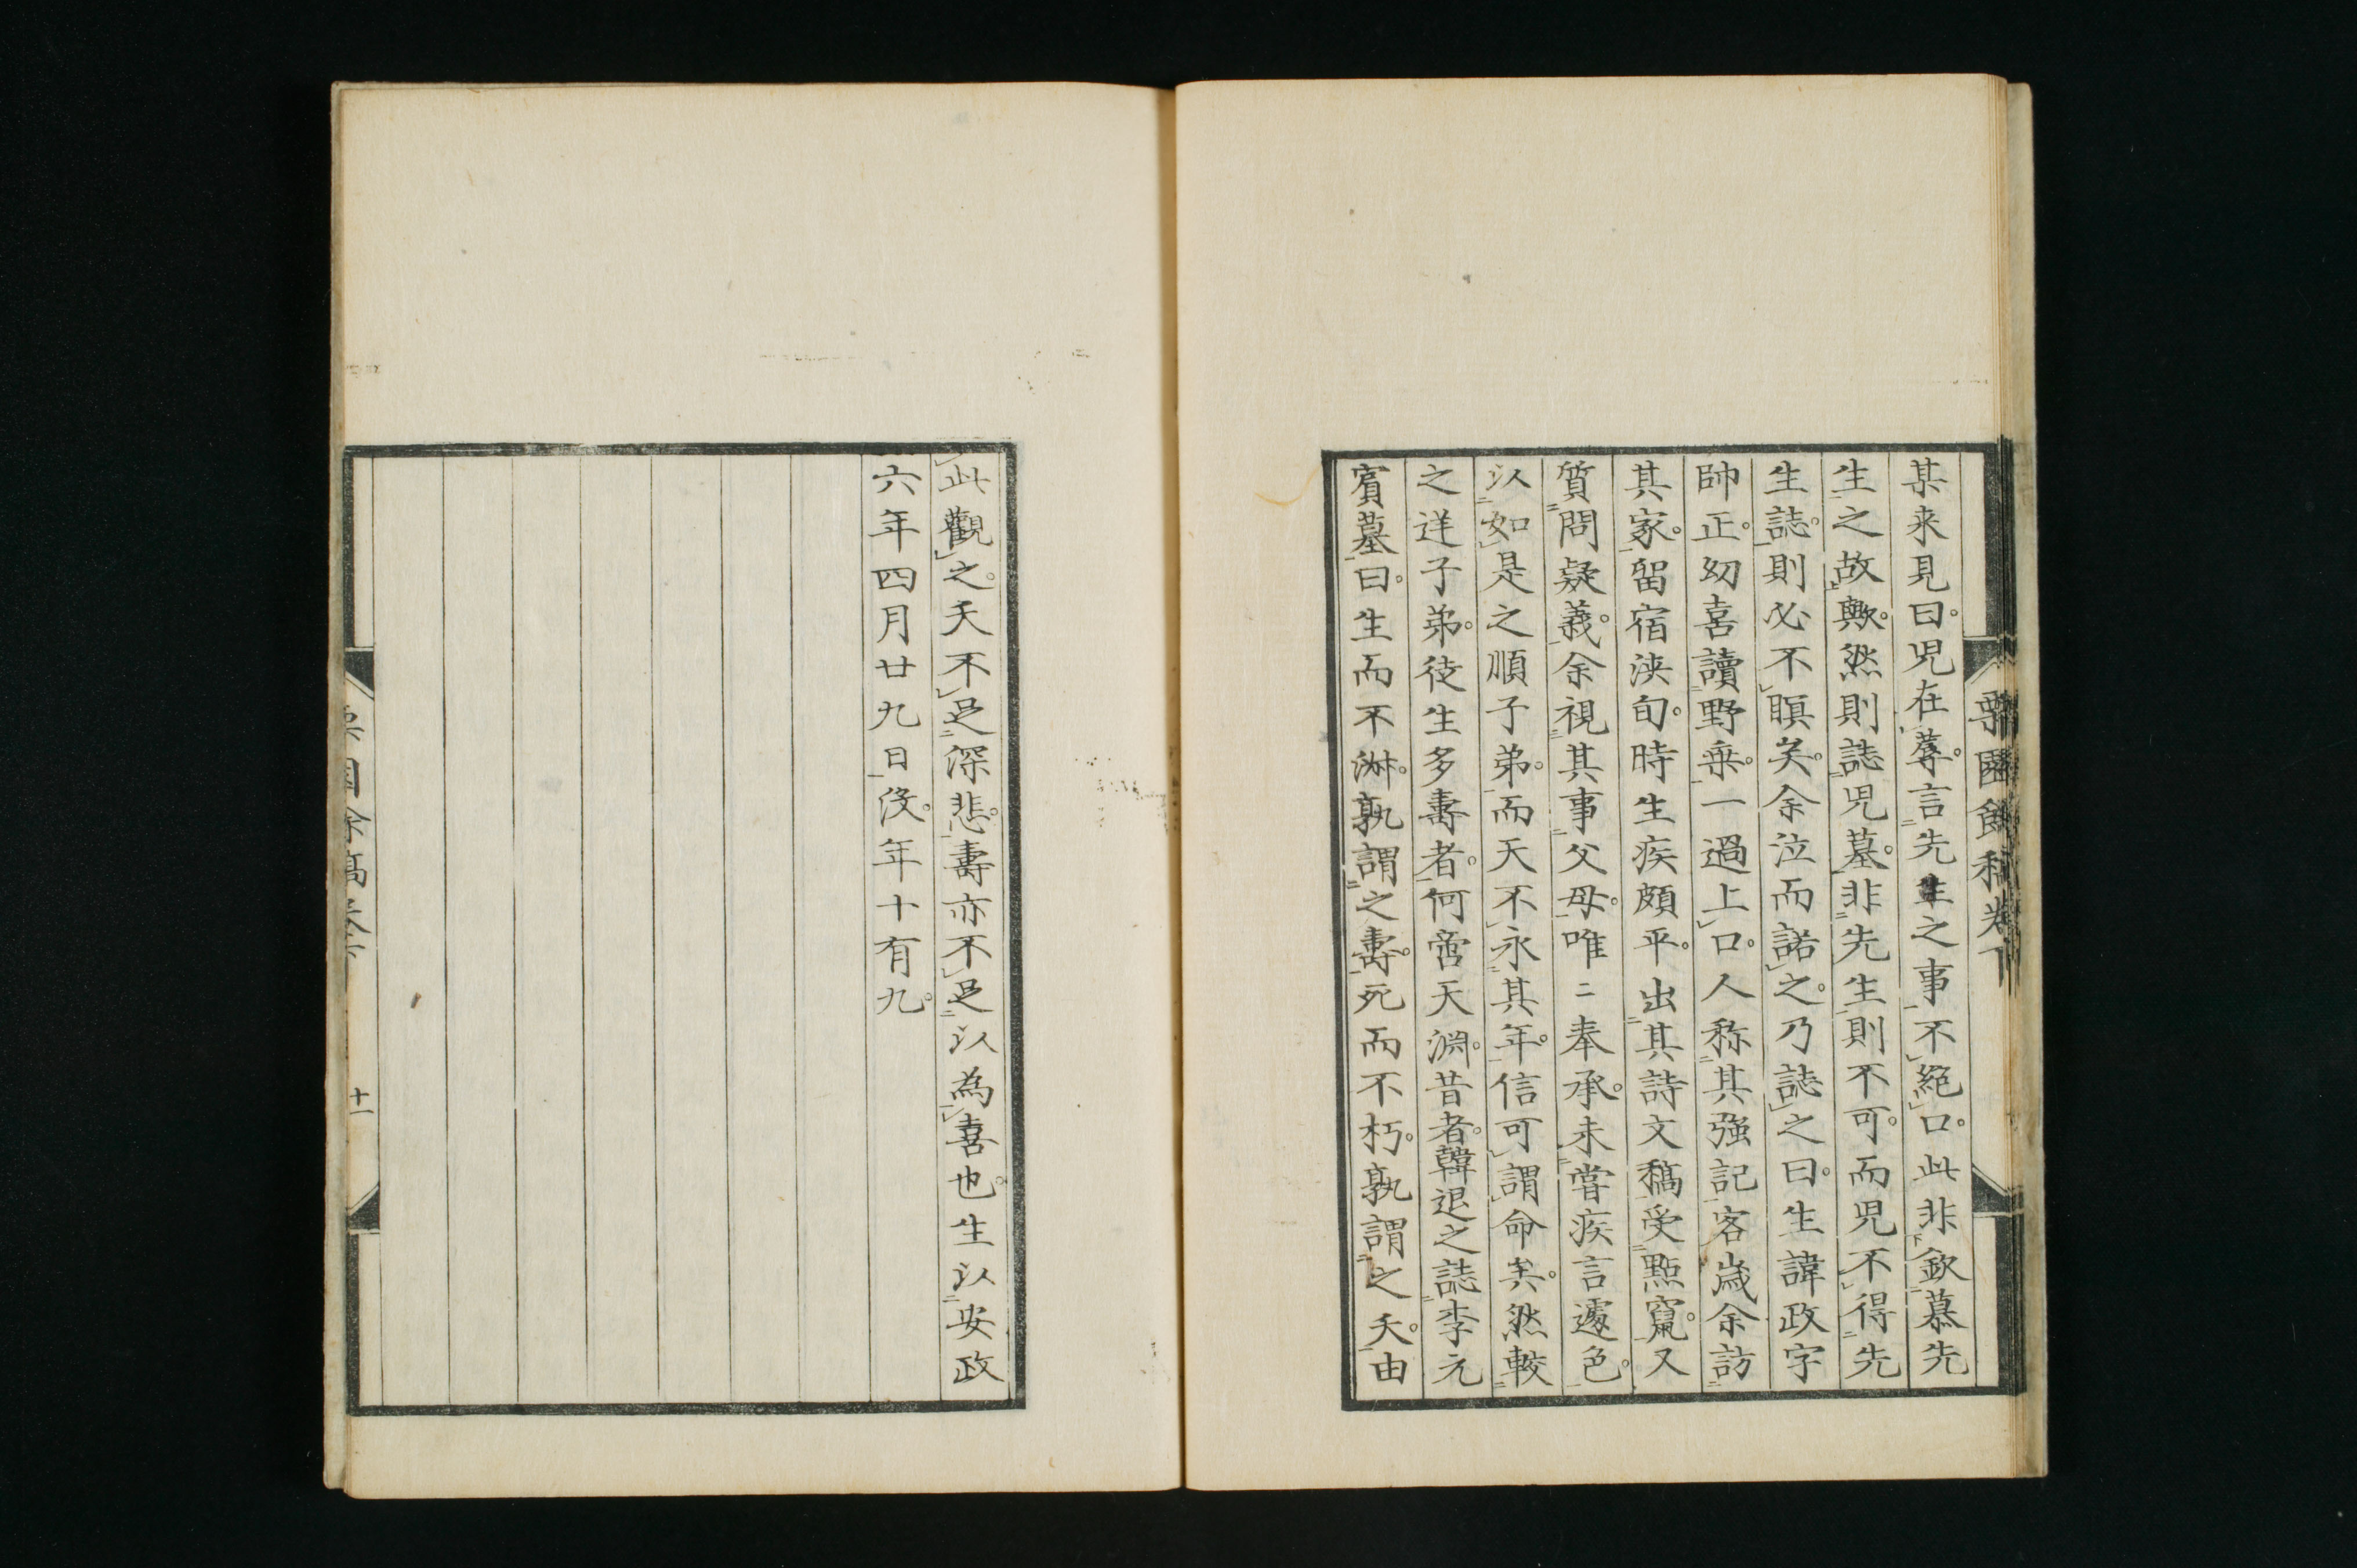 某来見曰。児在蓐。言先生之事不絶口。此非欽慕先
生之故歟。然則誌児墓。非先生則不可。而児不得先
生誌。則必不瞑矣。余泣而諾之。乃誌之曰。生諱政字
帥正。幼喜讀野乗。一過上口。人称其強記。客歳余訪
其家。留宿浹旬。時生疾頗平。出其詩文稿受點竄。又
質問疑義。余視其事父母。唯〻奉承。未嘗疾言遽色。
以如是之順子弟。而天不永其年。信可謂命矣。然較
之逆子弟。徒生多壽者。何啻天淵。昔者韓退之誌李元
賓墓曰。生而不淑。孰謂之壽。死而不朽。孰謂之夭。由
此觀之。夭不足深悲。壽亦不足以為喜也。生以安政
六年四月廿九日没。年十有九。
園餘稿卷下
十一